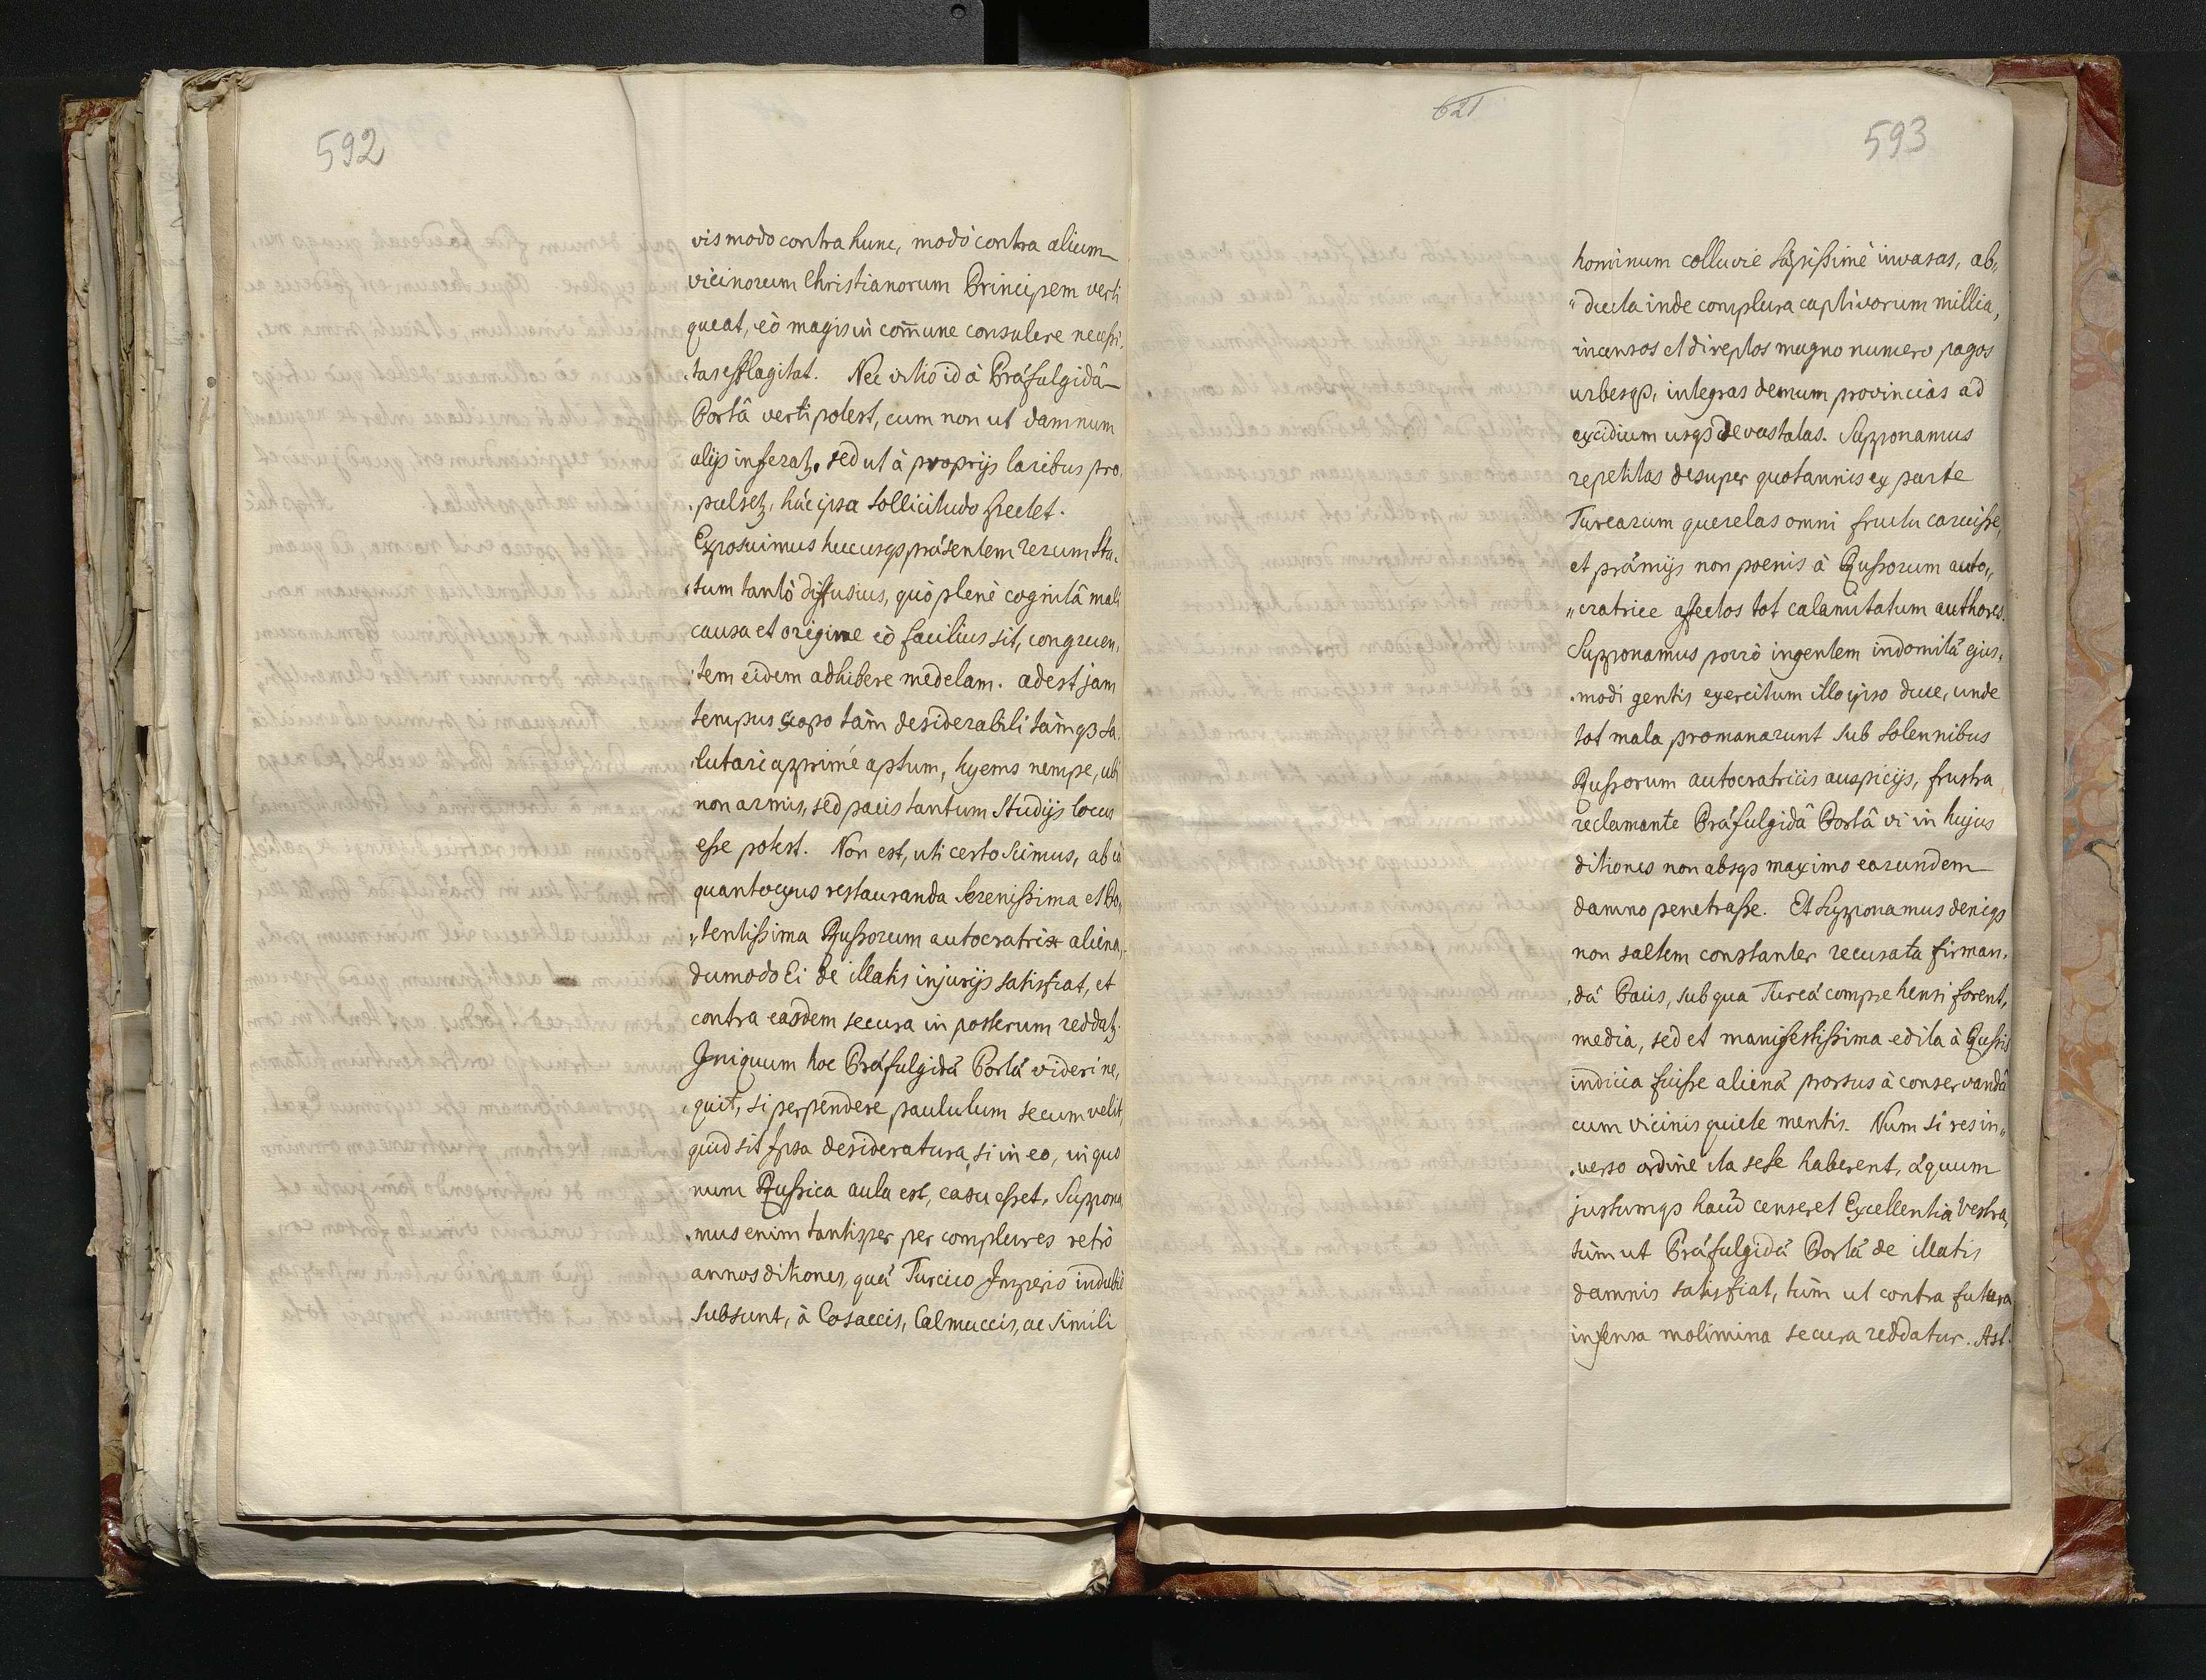 592
vis modo contra hunc, modò contra alium
vicinorum Christianorum Principem verti
queat, eò magis in com̄une consulere necessi„
„tas efflagitat. Nec vitio id à Præfulgidâ
Portâ verti potest, cum non ut damnum
alijs inferatꝫ, sed ut à proprijs laribus pro„
„pulsetꝫ, hæc ipsa sollicitudo spectet.
Exposuimus hucusqꝫ præsentem rerum sta„
„tum tantò diffusius, quò plenè cognitâ mali
causa et origine eò facilius sit, congruen„
„tem eidem adhibere medelam. adest jam
tempus scopo tàm desiderabili tàmqꝫ sa„
„lutari apprimè aptum, hyems nempe, ubi
non armis, sed pacis tantum studijs locus
esse potest. Non est, uti certo scimus, ab eâ
quantocyus restauranda Serenissima et Po„
„tentissima Russorum autocratrix aliena,
dummodo Ei de illatis injurijs satisfiat, et
contra easdem secura in posterum reddatꝫ.
Iniquum hoc Præfulgidæ Portæ videri ne„
„quit, si perpendere paululum secum velit,
quid sit Ipsa desideratura, si in eo, in quo
nunc Russica aula est, casu esset. Suppona„
„mus enim tantisper per complures retrò
annos ditiones, quæ Turcico Imperio indubiè
subsunt, à Cosaccis, Calmuccis, ac simili
621
593
hominum colluvie sæpissimè invasas, ab„
„ducta inde complura captivorum millia,
incensos et direptos magno numero pagos
urbesqꝫ, integras demum provincias ad
excidium usqꝫ devastatas. Supponamus
repetitas desuper quotannis ex parte
Turcarum querelas omni fructu caruisse,
et præmijs non poenis à Russorum auto„
„cratrice affectos tot calamitatum authores.
Supponamus porrò ingentem indomitæ ejus„
„modi gentis exercitum illo ipso duce, unde
tot mala promanarunt sub solennibus
Russorum autocratricis auspicijs, frustra
reclamante Præfulgidâ Portâ vi in hujus
ditiones non absqꝫ maximo earundem
damno penetrasse. Et Supponamus deniqꝫ
non saltem constanter recusata firman„
„dæ Pacis, sub qua Turcæ comprehensi forent,
media, sed et manifestissima edita à Russis
indicia fuisse alienæ prorsus à conservandâ
cum vicinis quiete mentis. Num si res in„
„verso ordine ita sese haberent, æquum
justumqꝫ haud censeret Excellentia Vestra,
tùm ut Præfulgidæ Portæ de illatis
damnis satisfiat, tùm ut contra futura
infensa molimina secura reddatur. Ast